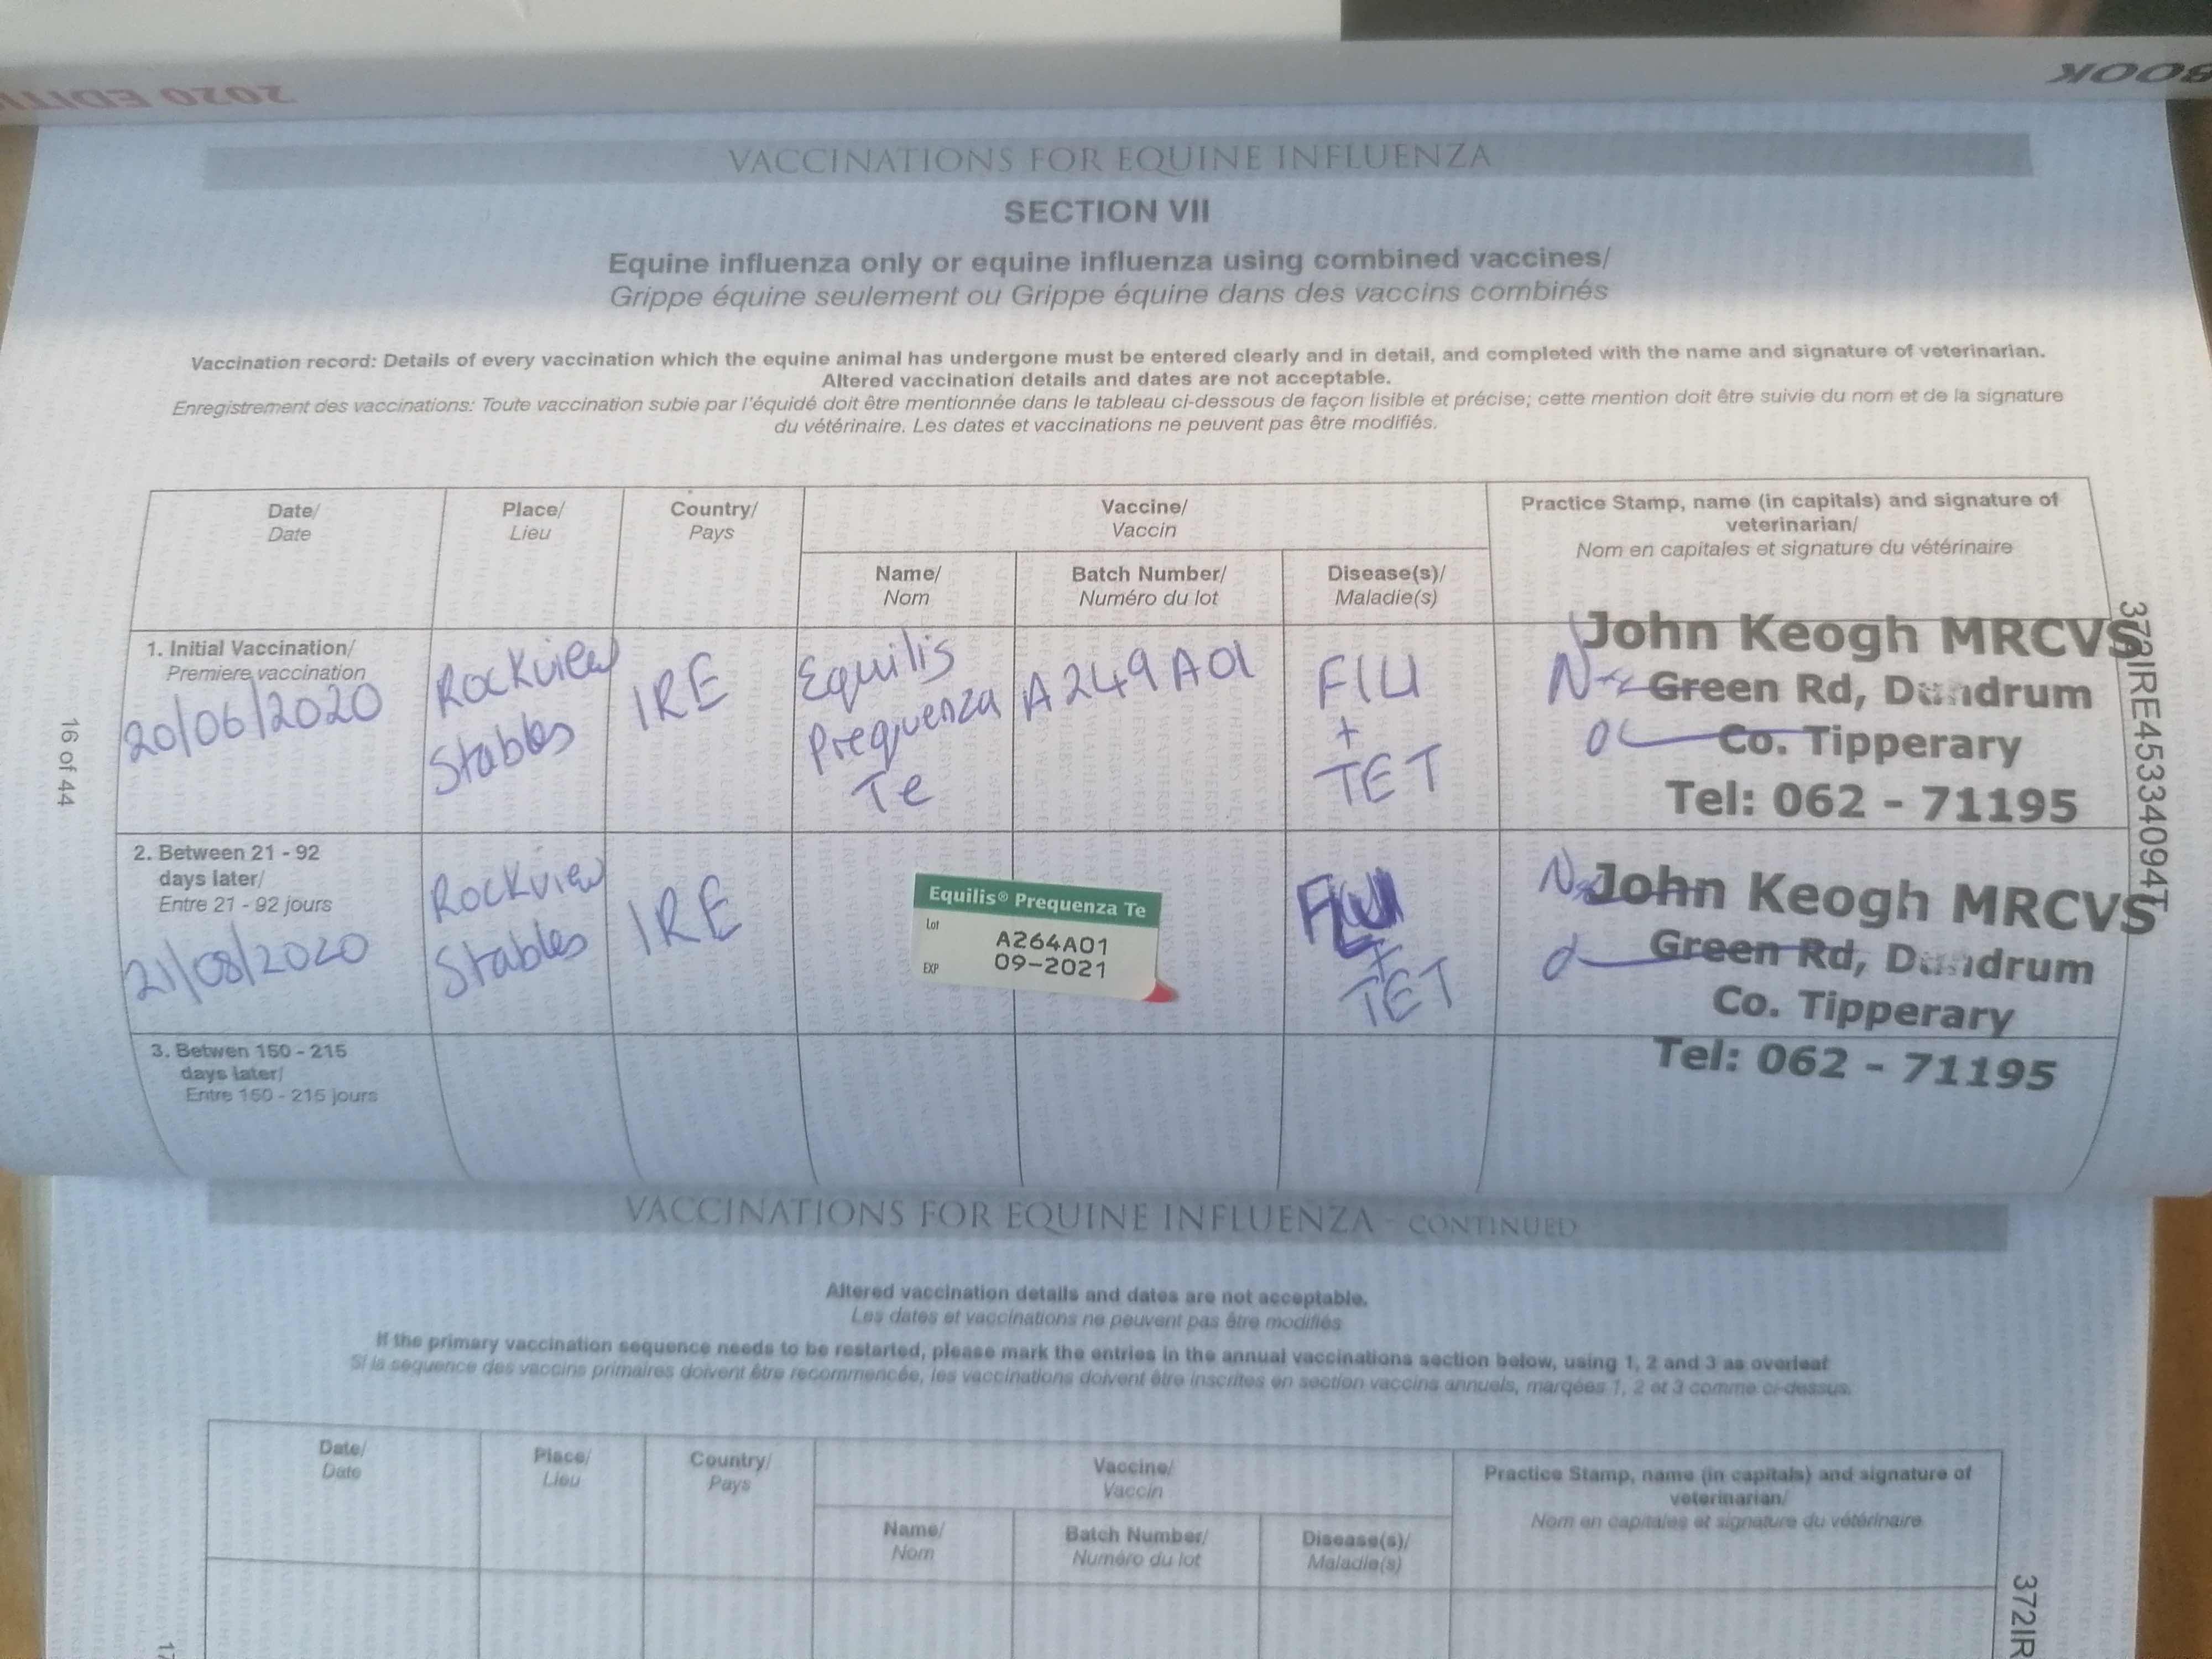 2020 EDITI
BOOK
VACCINATIONS FOR EQUINE INFLUENZA
SECTION VII
Equine influenza only or equine influenza using combined vaccines/
Grippe équine seulement ou Grippe équine dans des vaccins combinés
Vaccination record: Details of every vaccination which the equine animal has undergone must be entered clearly and in detail, and completed with the name and signature of veterinarian.
Altered vaccination details and dates are not acceptable.
Enregistrement des vaccinations: Toute vaccination subie par l'équidé doit être mentionnée dans le tableau ci-dessous de façon lisible et précise; cette mention doit être suivie du nom et de la signature
du vétérinaire. Les dates et vaccinations ne peuvent pas être modifiés.
Date/
Date
Place/
Lieu
Country/
Pays
Vaccine/
Vaccin
Name/
Nom
Batch Number/
Numéro du lot
Disease(s)/
Maladie(s)
Practice Stamp, name (in capitals) and signature of
veterinarian/
Nom en capitales et signature du vétérinaire
1. Initial Vaccination/
Premiere vaccination
20/06/2020
Rockview
Stables
IRE
Equilis
Prequenza
Te
A249A01
FLU
+
TET
John Keogh MRCVS
Green Rd, Dundrum
Co. Tipperary
Tel: 062 - 71195
2. Between 21 - 92
days later/
Entre 21 - 92 jours
21/08/2020
Rockview
Stables
IRE
Equilis® Prequenza Te
Lot A264A01
EXP 09-2021
FLU
+
TET
John Keogh MRCVS
Green Rd, Dundrum
Co. Tipperary
Tel: 062 - 71195
3. Betwen 150 - 215
days later/
Entre 150 - 215 jours
16 of 44
372IRE45334094T
VACCINATIONS FOR EQUINE INFLUENZA - CONTINUED
Altered vaccination details and dates are not acceptable.
Les dates et vaccinations ne peuvent pas être modifiés
If the primary vaccination sequence needs to be restarted, please mark the entries in the annual vaccinations section below, using 1, 2 and 3 as overleaf
Si la sequence des vaccins primaires doivent être recommencée, les vaccinations doivent être inscrites en section vaccins annuels, marqées 1, 2 et 3 comme ci-dessus.
Date/
Date
Place/
Lieu
Country/
Pays
Vaccine/
Vaccin
Name/
Nom
Batch Number/
Numéro du lot
Disease(s)/
Maladie(s)
Practice Stamp, name (in capitals) and signature of
veterinarian/
Nom en capitales et signature du vétérinaire
17
372IR